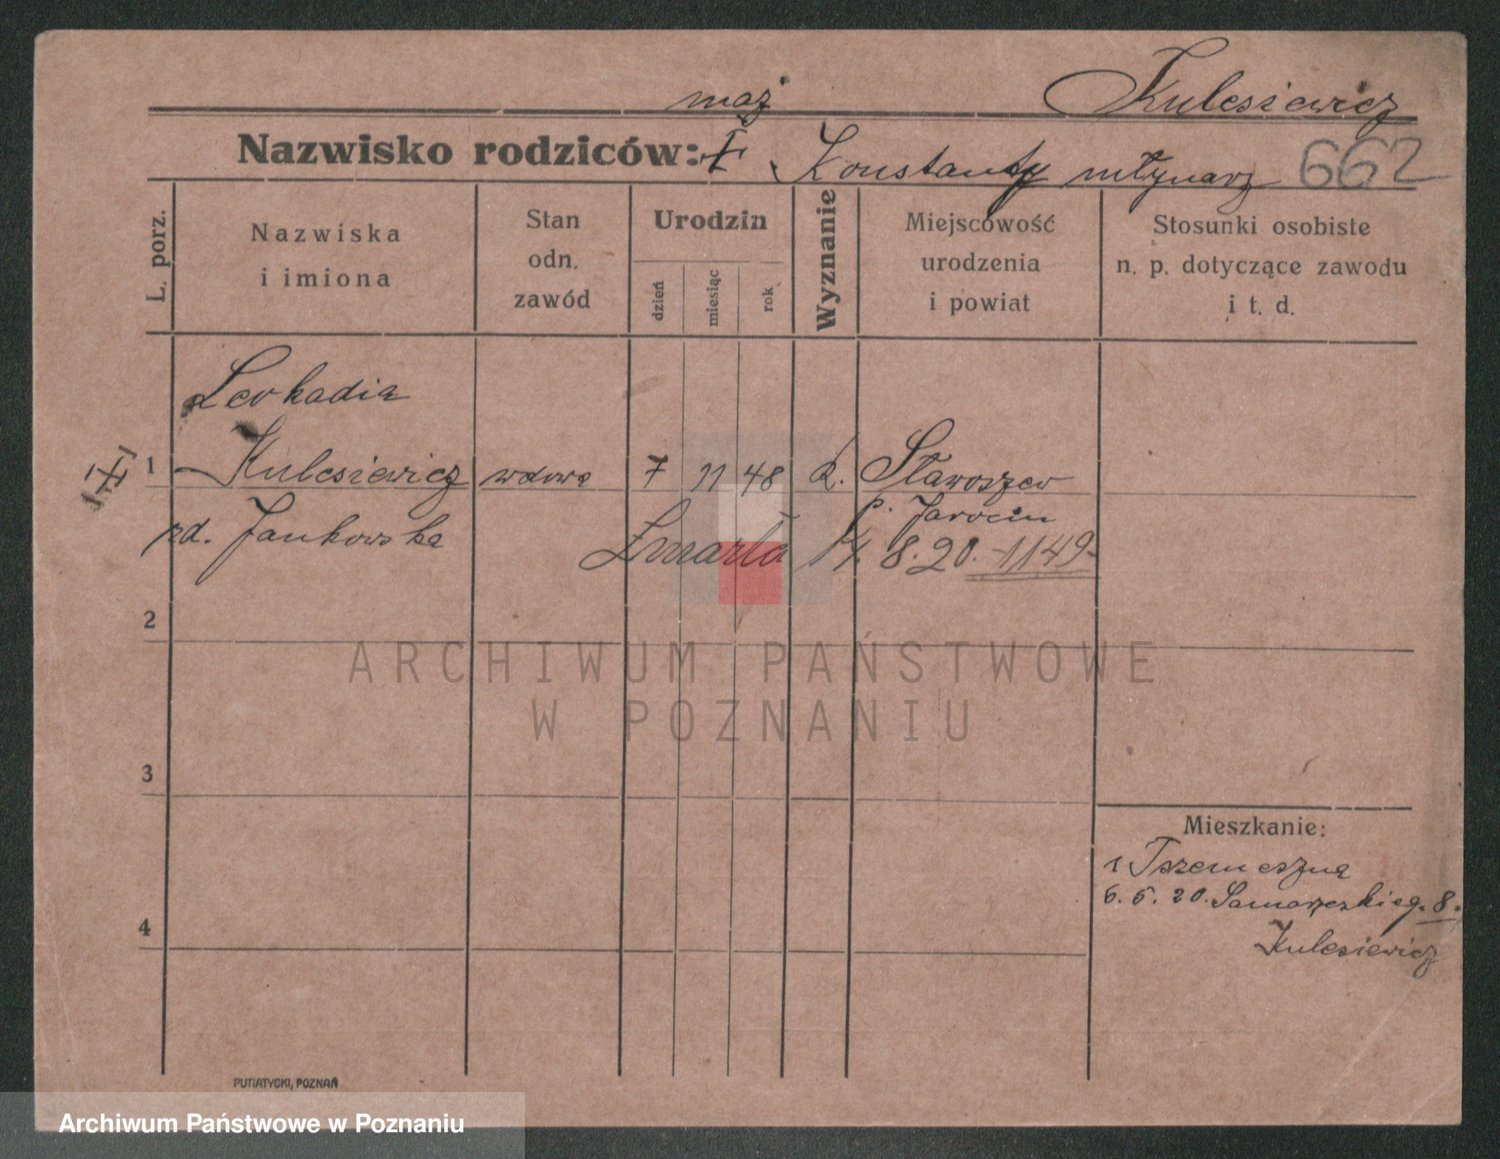 Kulesiewicz
mąż
Nazwisko rodziców: Konstanty młynarz 662
L. porz.
Nazwiska
i imiona
Stan
odn.
zawód
Urodzin
dzień
miesiąc
rok
Wyznanie
Miejscowość
urodzenia
i powiat
Stosunki osobiste
n. p. dotyczące zawodu
i t. d.
Leokadia
1 Kulesiewicz wdowa 7 11 48 k. Staroszew
zd. Jankowska p. Jarocin
Zmarła 8.20. 1149
2
3
4
Mieszkanie:
z Trzemeszna
6. 5. 20. 8.
Kulesiewicz
PUTIATYCKI, POZNAŃ
ARCHIWUM PAŃSTWOWE
W POZNANIU
Archiwum Państwowe w Poznaniu